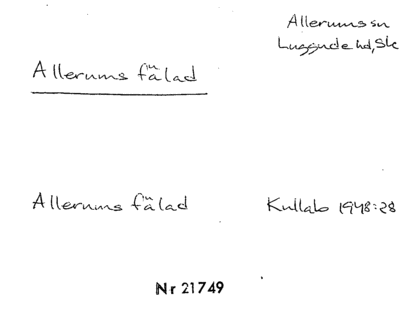 Allerums sn
Luggude hd, Sk
Allerums fälad
Allerums fälad
Kullab 1948:28
Nr 21749